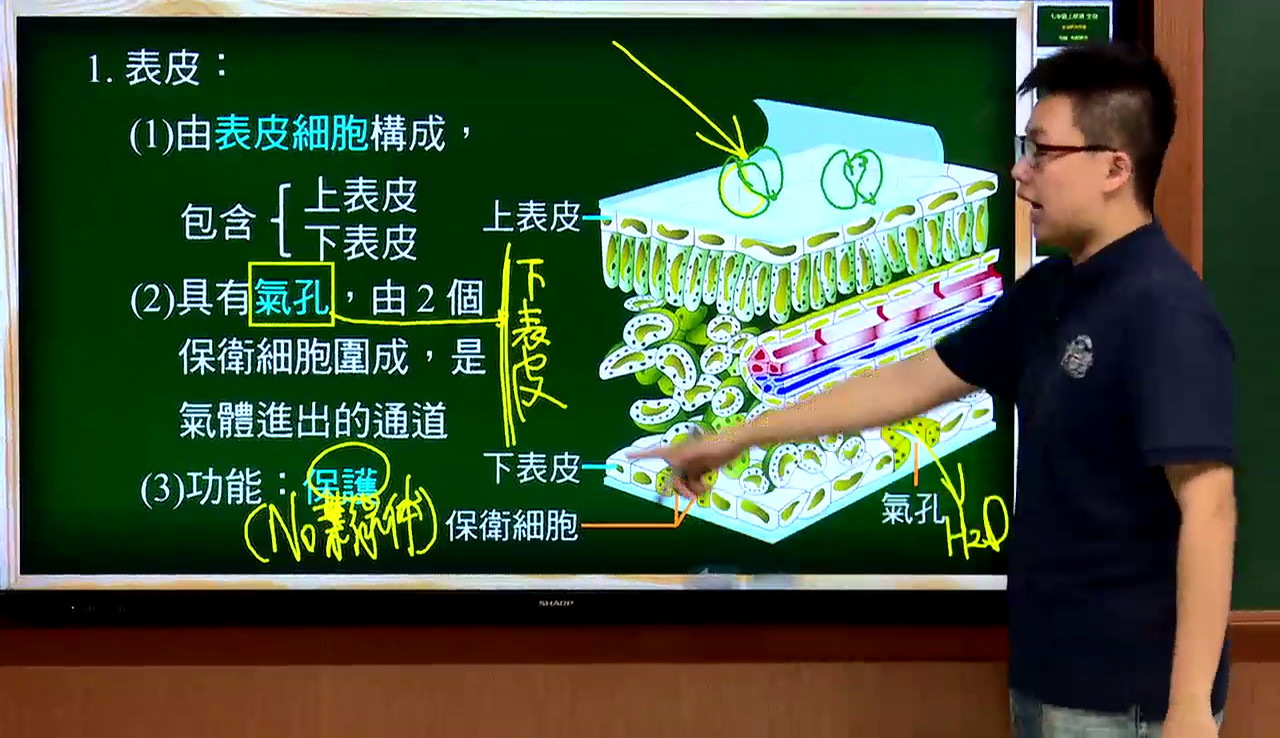 1. 表皮：
(1)由表皮細胞構成，
包含
上表皮
下表皮
(2)具有氣孔，由2個
保衛細胞圍成，是
氣體進出的通道
(3)功能：保護
(No葉綠体)
上表皮
下表皮
下表皮
保衛細胞
氣孔
H2O
SHARP